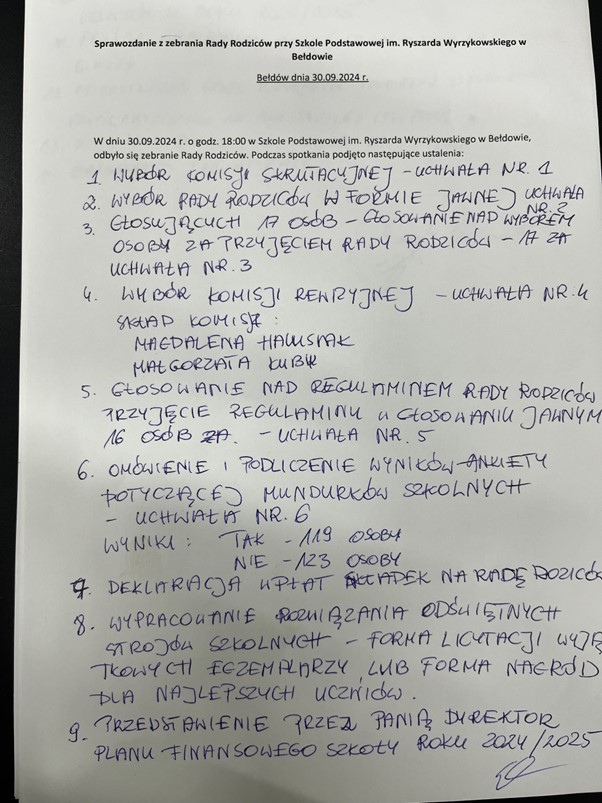 Sprawozdanie z zebrania Rady Rodziców przy Szkole Podstawowej im. Ryszarda Wyrzykowskiego w
Bełdowie
Bełdów dnia 30.09.2024 r.
W dniu 30.09.2024 r. o godz. 18:00 w Szkole Podstawowej im. Ryszarda Wyrzykowskiego w Bełdowie,
odbyło się zebranie Rady Rodziców. Podczas spotkania podjęto następujące ustalenia:
1. WYBÓR KOMISJI SKRUTACYJNEJ - UCHWAŁA NR. 1
2. WYBÓR RADY RODZICÓW W FORMIE JAWNEJ UCHWAŁA
NR. 2
3. GŁOSUJĄCYCH 17 OSÓB - GŁOSOWANIE NAD WYBOREM
OSOBY ZA PRZYJĘCIEM RADY RODZICÓW - 17 ZA
UCHWAŁA NR. 3
4. WYBÓR KOMISJI REWIZYJNEJ - UCHWAŁA NR. 4
SKŁAD KOMISJI :
MAGDALENA
MAŁGORZATA
5. GŁOSOWANIE NAD REGULAMINEM RADY RODZICÓW
PRZYJĘCIE REGULAMINU W GŁOSOWANIU JAWNYM
16 OSÓB ZA. - UCHWAŁA NR. 5
6. OMÓWIENIE I PODLICZENIE WYNIKÓW ANKIETY
DOTYCZĄCEJ MUNDURKÓW SZKOLNYCH
- UCHWAŁA NR. 6
WYNIKI : TAK - 119 OSOBY
NIE - 123 OSOBY
7. DEKLARACJA WPŁAT SKŁADEK NA RADĘ RODZICÓW
8. WYPRACOWANIE ROZWIĄZANIA ODŚWIĘTNYCH
STROJÓW SZKOLNYCH - FORMA LICYTACJI WYJĄ
TKOWYCH EGZEMPLARZY LUB FORMA NAGRÓD
DLA NAJLEPSZYCH UCZNIÓW.
9. PRZEDSTAWIENIE PRZEZ PANIĄ DYREKTOR
PLANU FINANSOWEGO SZKOŁY ROKU 2024/2025